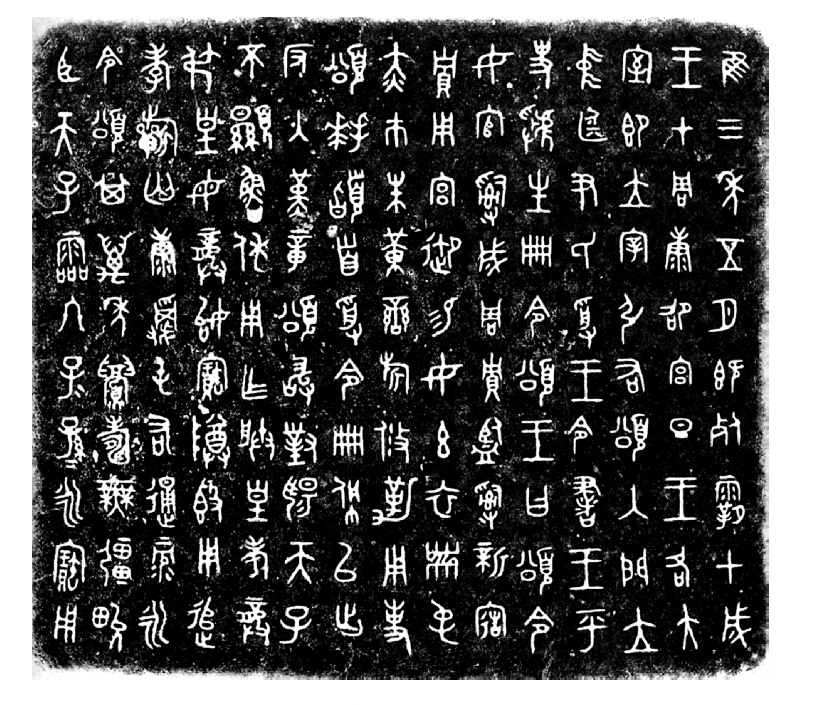 隹三年五月既死霸甲戌
王才周康卲宮旦王各大
室即立宰引右頌入門立
中廷尹氏受王令書王乎
史虢生冊令頌王曰頌令
女官𤔲成周貯監𤔲新造
貯用宮御易女玄衣黹屯
赤巿朱黃䜌旂攸勒用事
頌拜𩒨首受令冊佩以出
反入堇章頌敢對揚天子
不顯魯休用乍朕皇考龏
弔皇母龏始寶尊簋用追
孝祈匄康𢓊屯右通彔永
令頌其萬年眉壽無疆畯
臣天子霝冬子=孫=永寶用